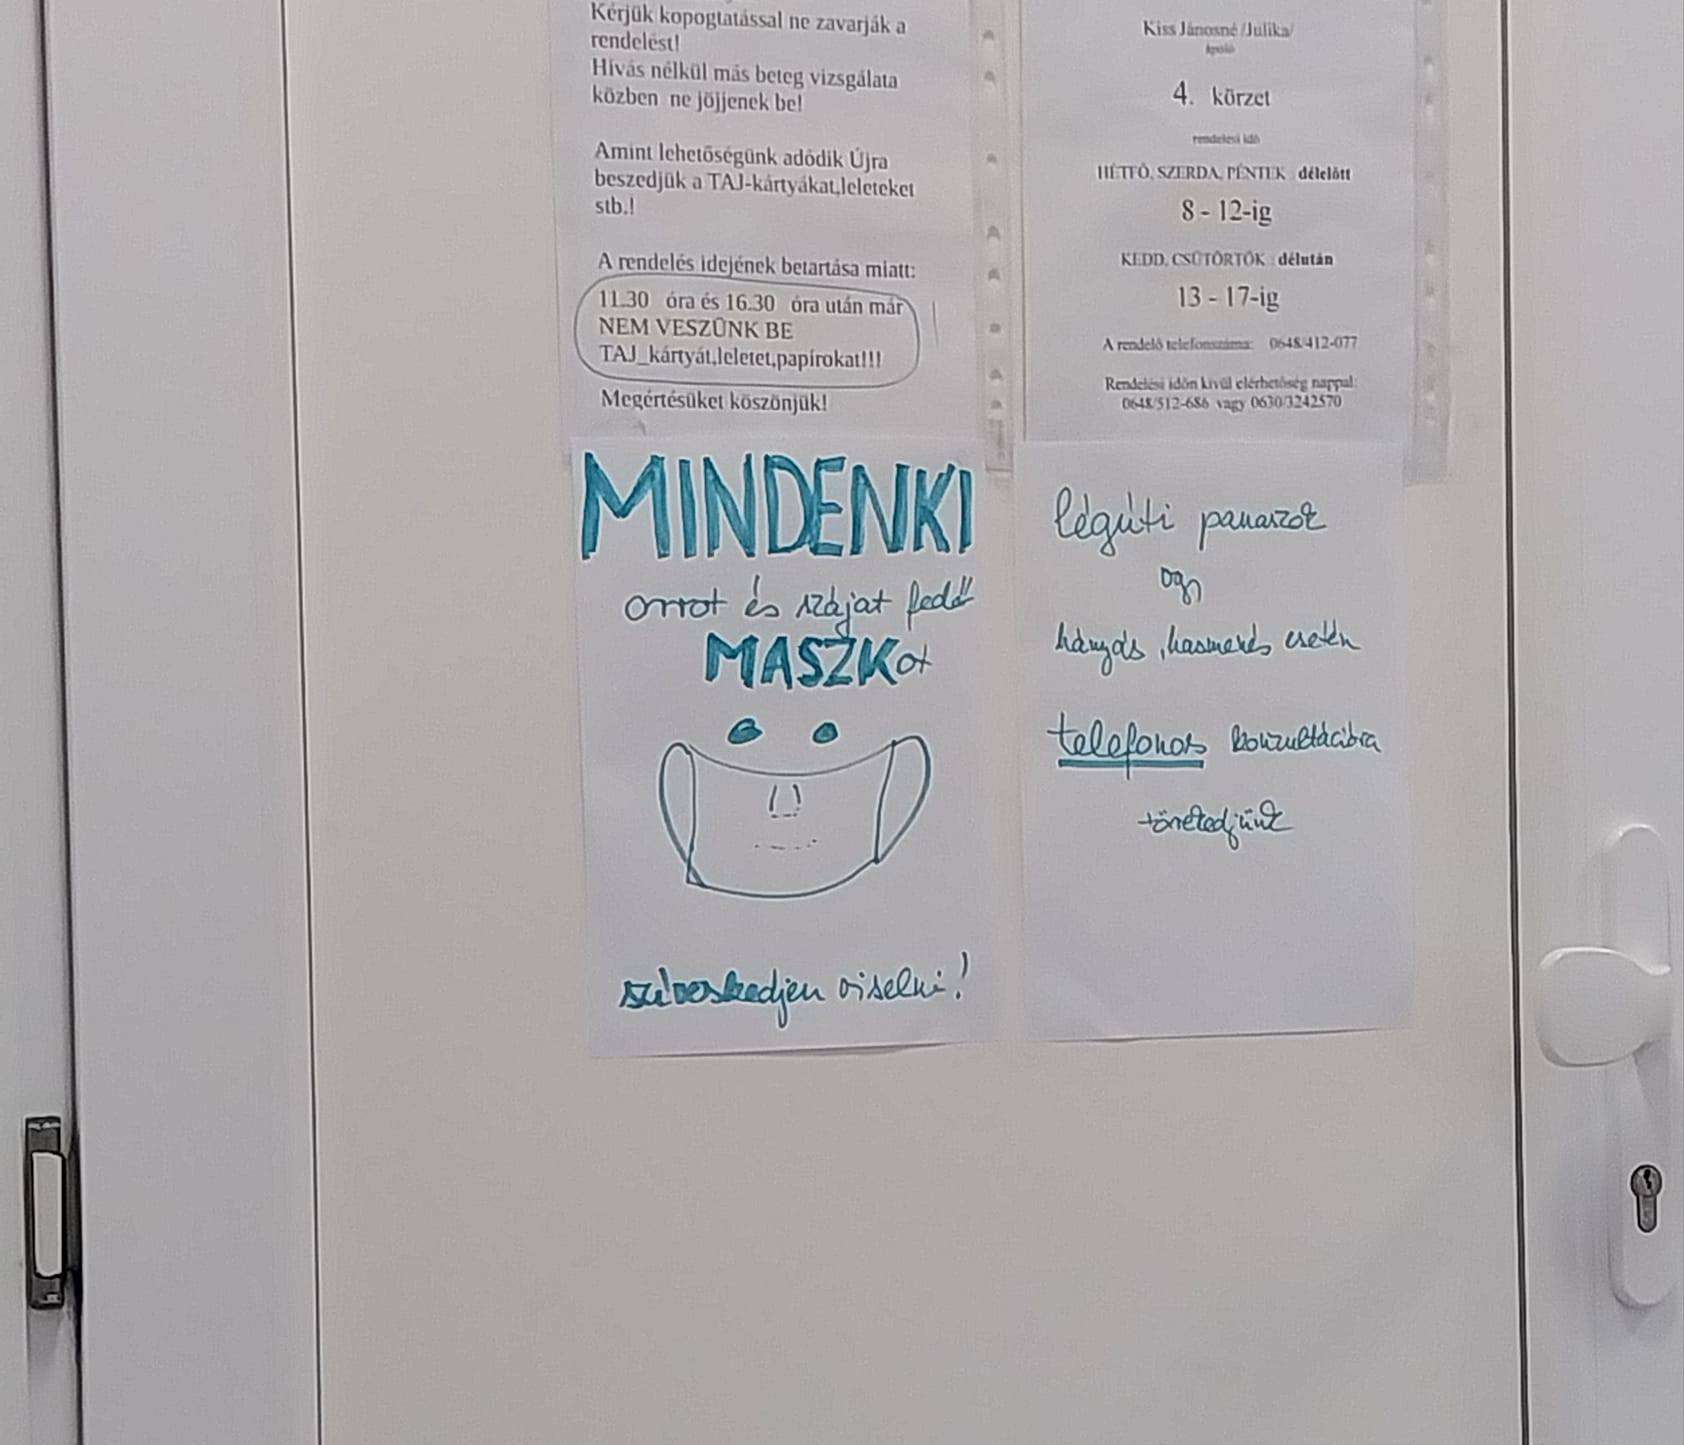 Kérjük kopogtatással ne zavarják a
rendelést!
Hívás nélkül más beteg vizsgálata
közben ne jöjjenek be!
Amint lehetőségünk adódik Újra
beszedjük a TAJ-kártyákat,leleteket
stb.!
A rendelés idejének betartása miatt:
11.30 óra és 16.30 óra után már
NEM VESZÜNK BE
TAJ_kártyát,leletet,papírokat!!!
Megértésüket köszönjük!
Kiss Jánosné /Julika/
ápoló
4. körzet
rendelési idő
HÉTFŐ, SZERDA, PÉNTEK délelőtt
8 - 12-ig
KEDD, CSÜTÖRTÖK délután
13 - 17-ig
A rendelő telefonszáma: 0648/412-077
Rendelési időn kívül elérhetőség nappal:
0648/512-686 vagy 0630/3242570
MINDENKI
orrot és szájat fedő
MASZKot
szíveskedjen viselni!
légúti panaszok
vagy
hányás, hasmenés esetén
telefonos konzultációra
törekedjünk